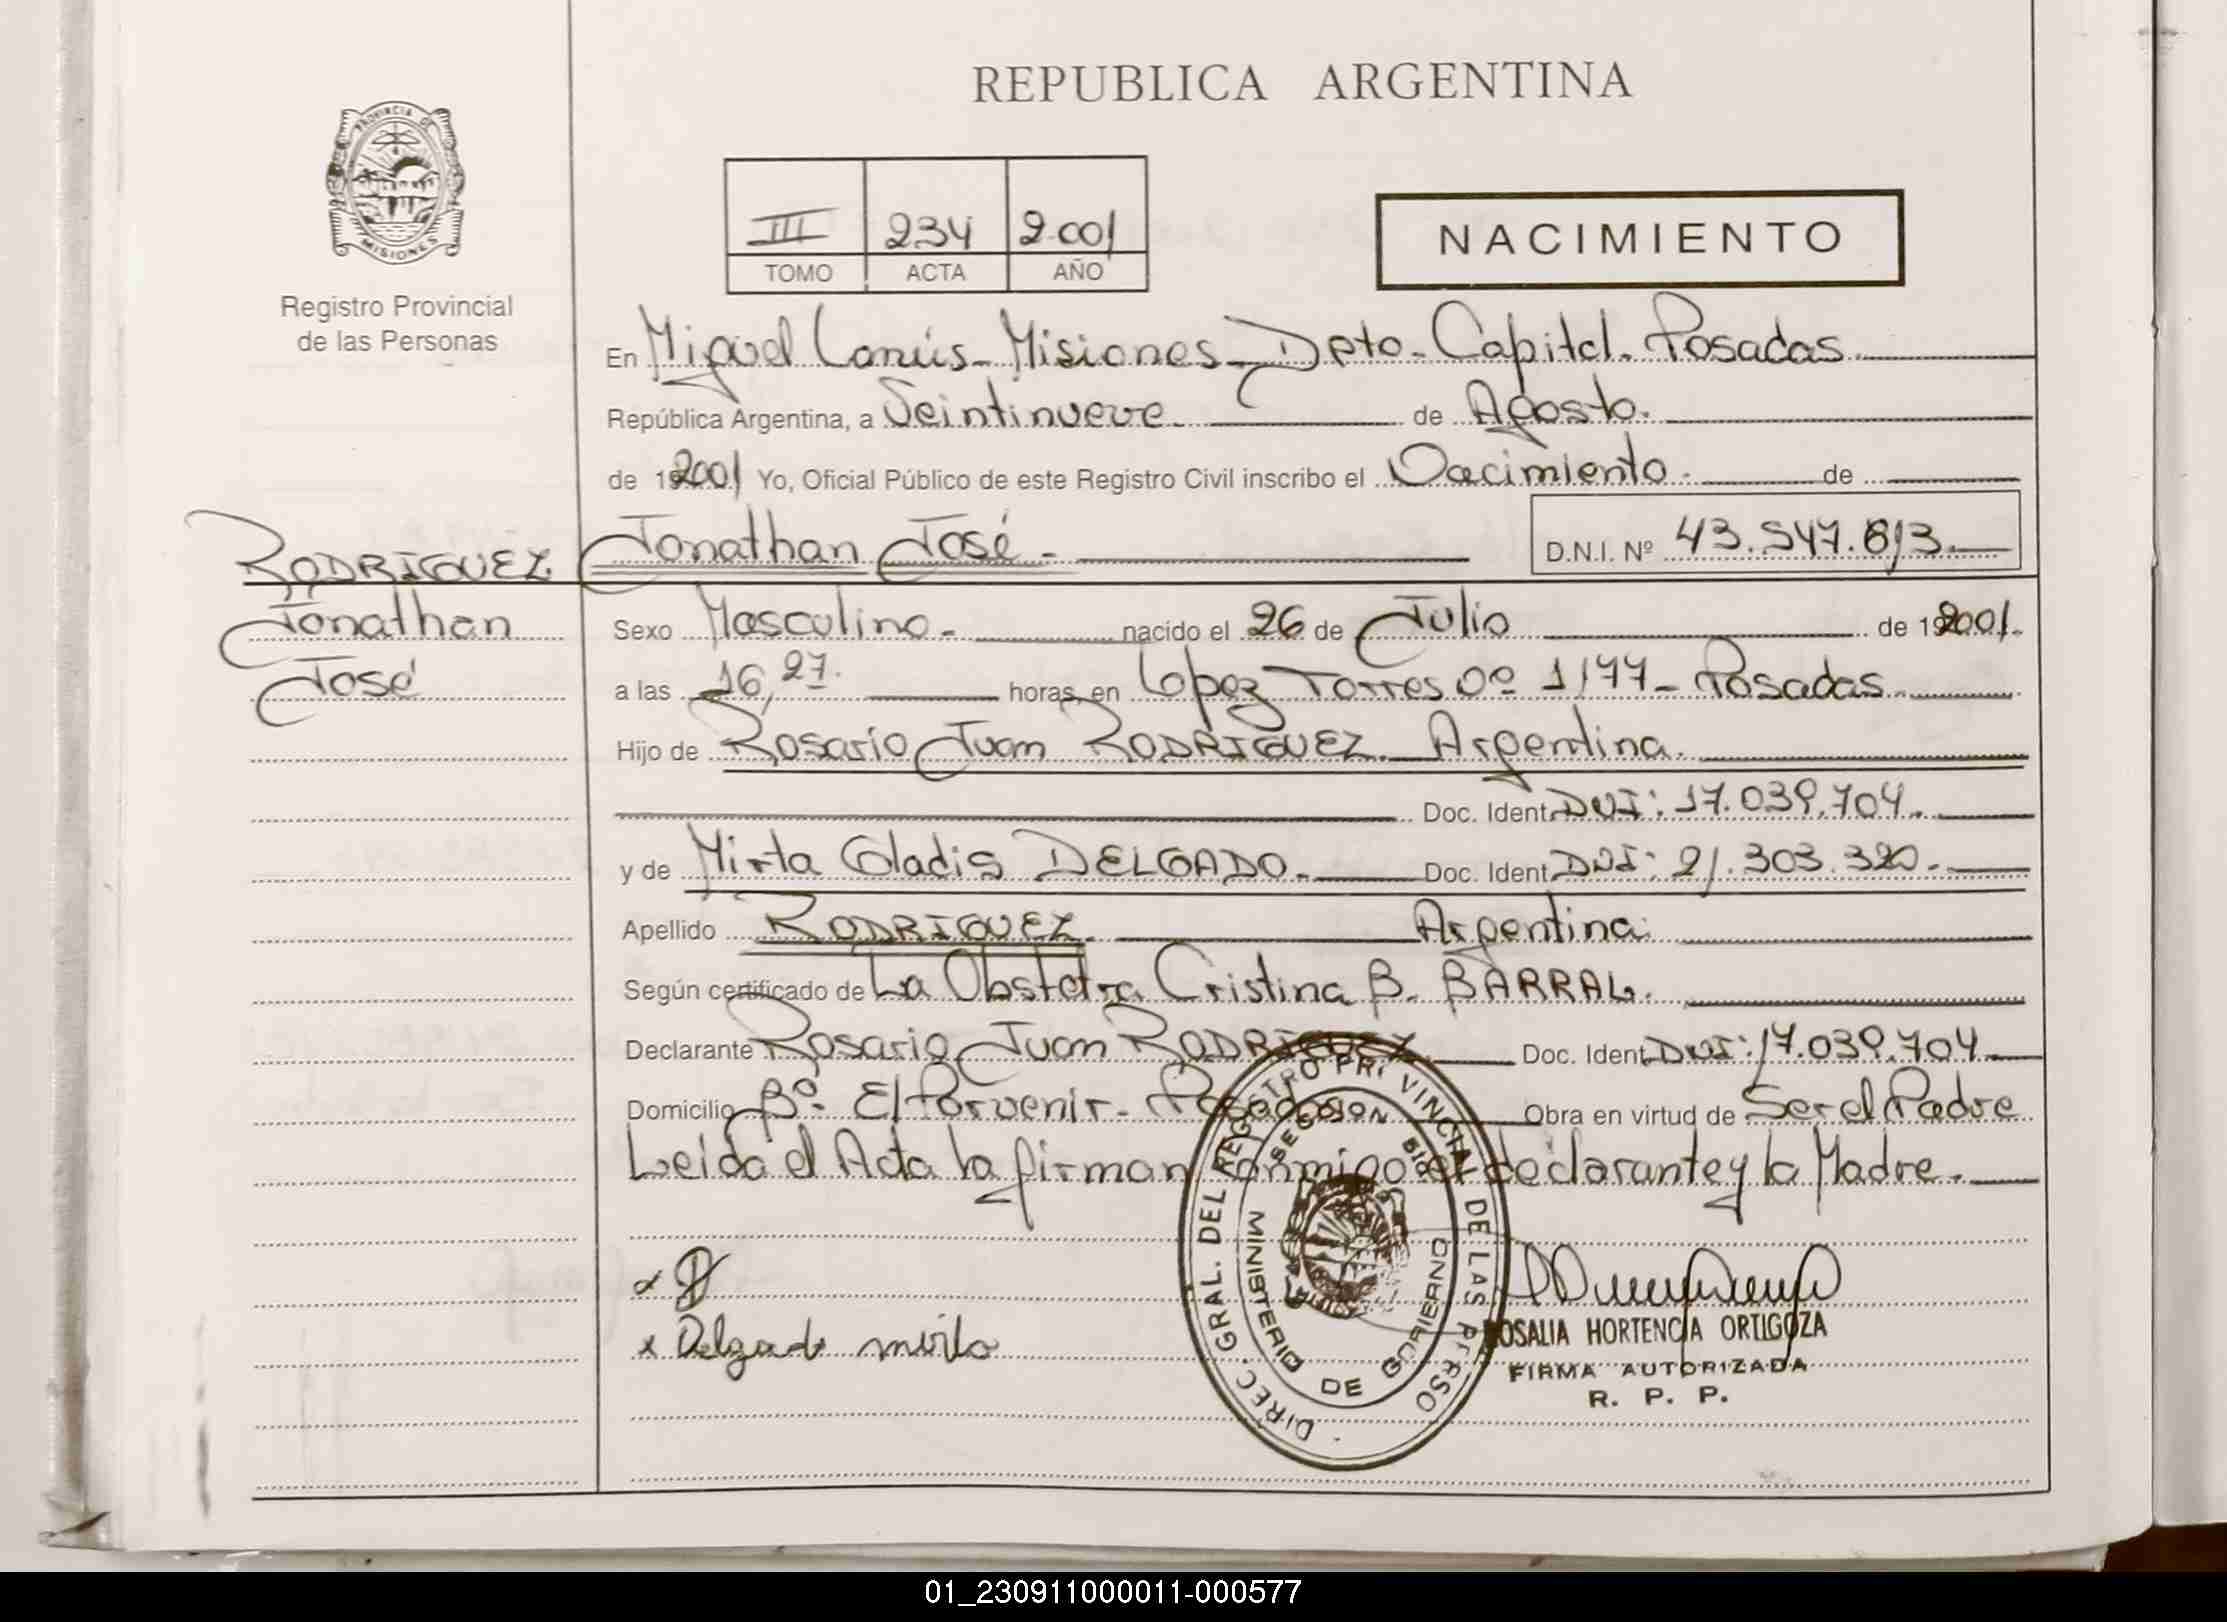 REPUBLICA ARGENTINA
PROVINCIA DE
MISIONES
Registro Provincial
de las Personas
III 234 2.001
TOMO ACTA AÑO
NACIMIENTO
En Miguel Lanús - Misiones - Dpto. Capital. Posadas.
República Argentina, a Veintinueve. de Agosto.
de 2001 Yo, Oficial Público de este Registro Civil inscribo el Nacimiento. de
RODRIGUEZ Jonathan José - D.N.I. Nº 43.547.613.
Jonathan
José
Sexo Masculino. nacido el 26 de Julio de 2001.
a las 16,27. horas, en Lopez Torres nº 1177 - Posadas
Hijo de Rosario Juan RODRIGUEZ. Argentina.
Doc. Ident. DNI: 17.039.704.
y de Mirta Gladis DELGADO. Doc. Ident. DNI: 21.303.320.
Apellido RODRIGUEZ. Argentina.
Según certificado de La Obstetra Cristina B. BARRAL.
Declarante Rosario Juan RODRIGUEZ Doc. Ident. DNI: 17.039.704
Domicilio Bº. El Porvenir - Posadas Obra en virtud de Ser el Padre
Leída el Acta la firman conmigo el declarante y la Madre.
DIREC. GRAL. DEL REGISTRO PROVINCIAL DE LAS PERSO
MINISTERIO DE GOBIERNO
x
x Delgado mirta
ROSALIA HORTENCIA ORTIGOZA
FIRMA AUTORIZADA
R. P. P.
01_230911000011-000577